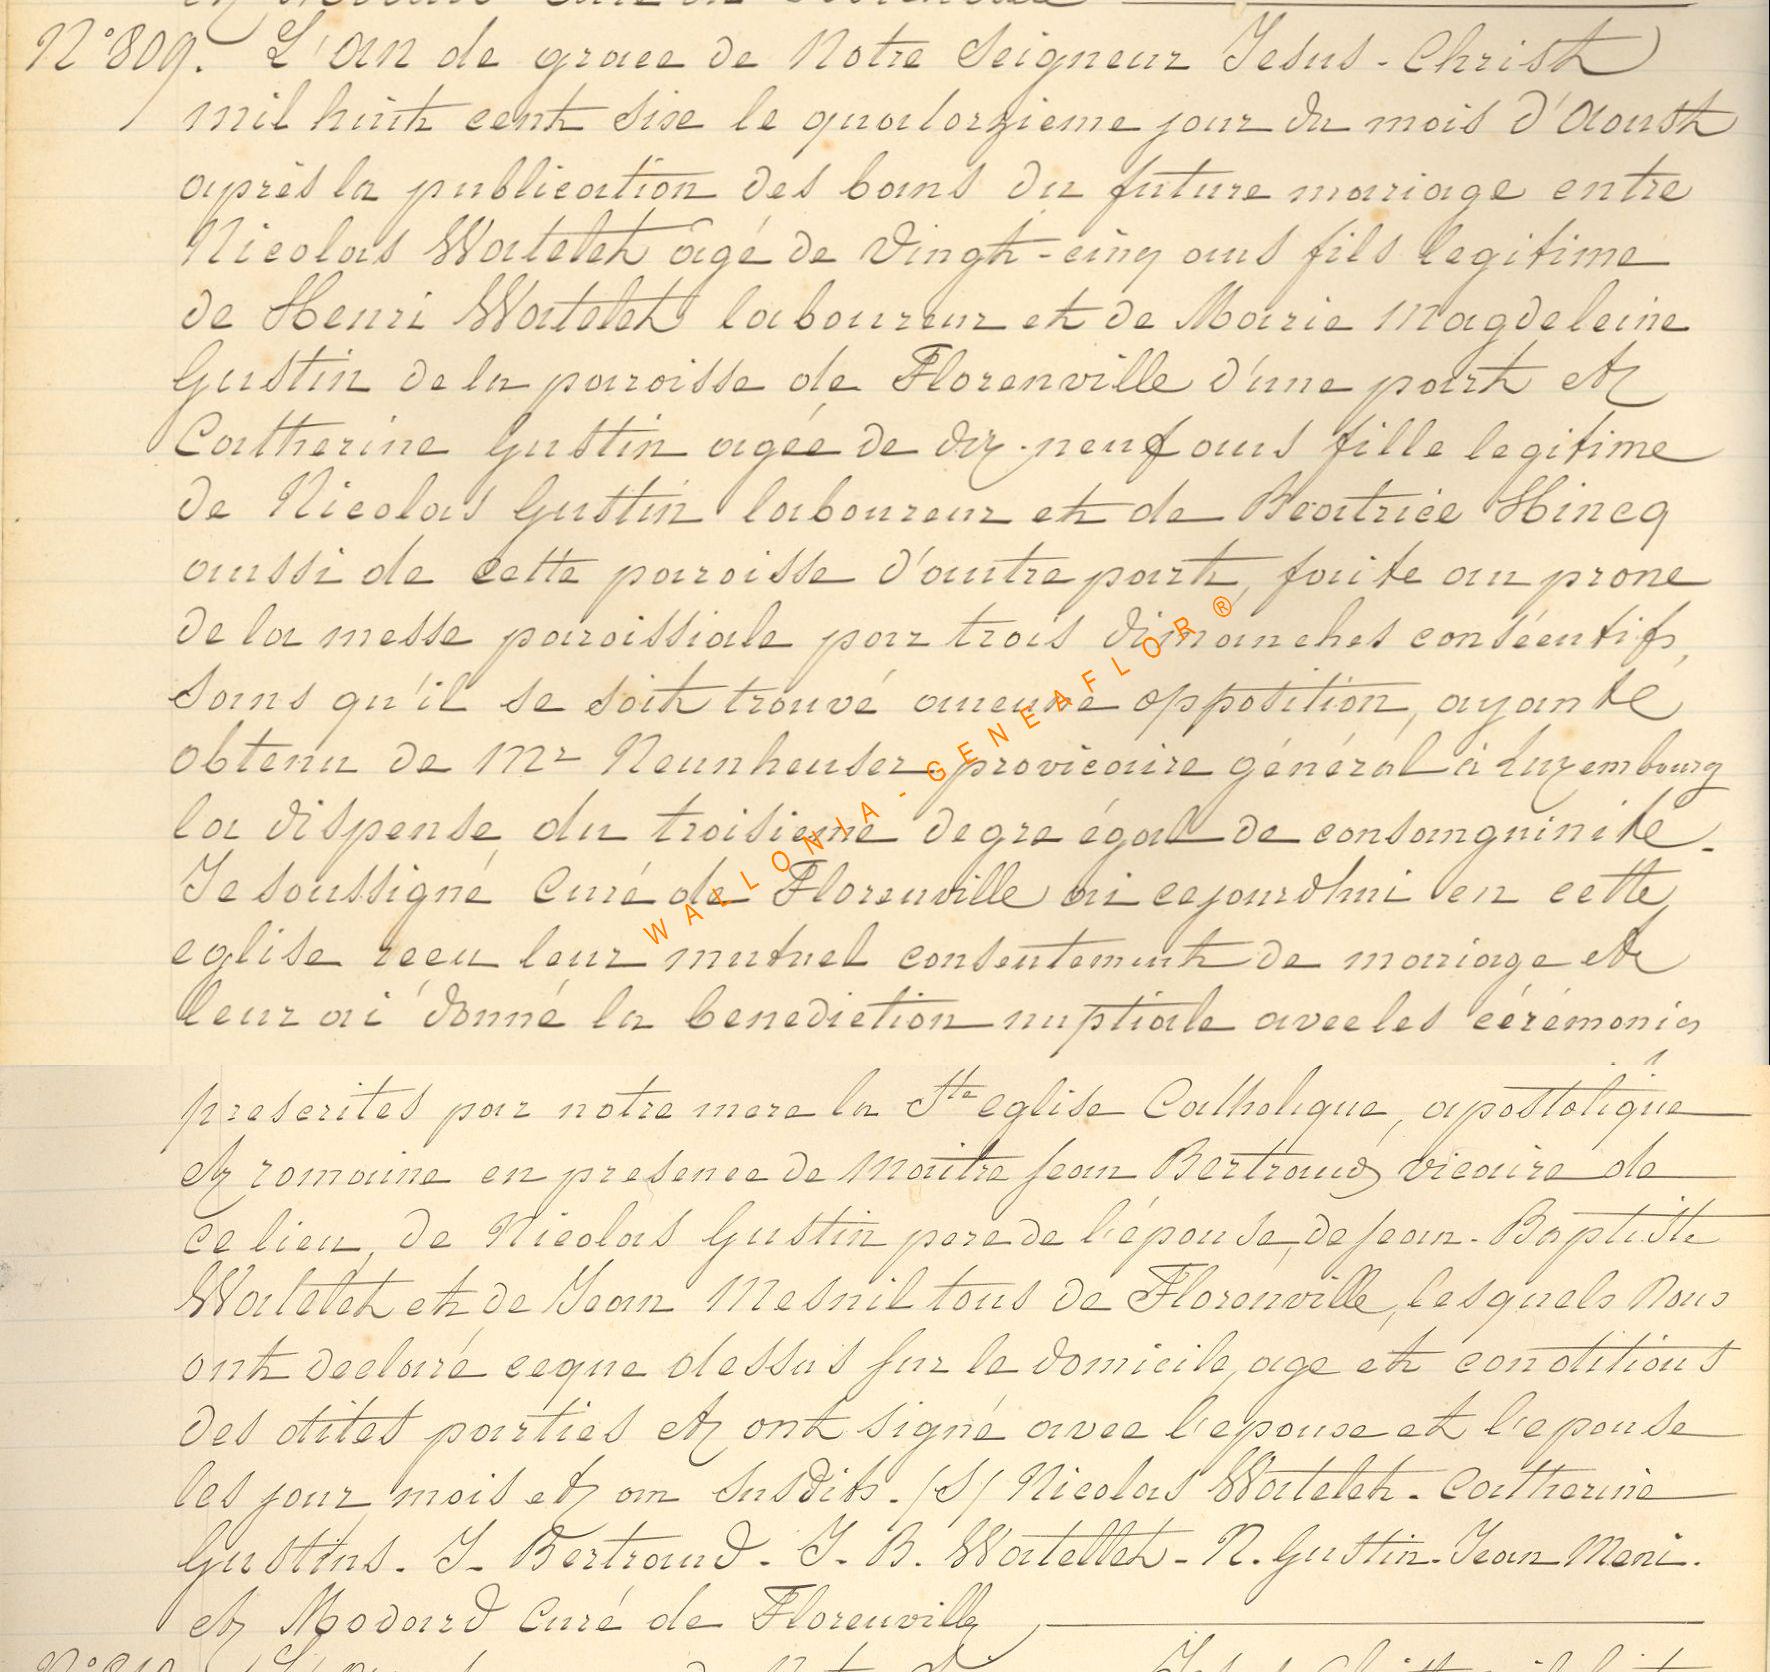 N° 809. L'an de grace de Notre Seigneur Jesus-Christ
mil huit cent six le quatorzieme jour du mois d'Aoust
après la publication des bans du future mariage entre
Nicolas Watelet âgé de vingt-cinq ans fils legitime
de Henri Watelet laboureur et de Marie Magdeleine
Gustin de la paroisse de Florenville d'une part et
Catherine Gustin agée de dix-neuf ans fille legitime
de Nicolas Gustin laboureur et de Beatrice Hincq
aussi de cette paroisse d'autre part, faite au prone
de la messe paroissiale par trois dimanches consécutifs,
sans qu'il se soit trouvé aucune opposition, ayante
obtenu de Mr Neunheuser provicaire général à Luxembourg
la dispense du troisieme degre égal de consanguinité.
Je soussigné Curé de Florenville ai cejourdhui en cette
eglise recu leur mutuel consentement de mariage et
leur ai donné la benediction nuptiale avec les cérémonies
prescrites par notre mere la Ste eglise Catholique, apostolique
et romaine en presence de Maitre Jean Bertrand vicaire de
ce lieu, de Nicolas Gustin pere de l'épouse, de Jean-Baptiste
Watelet et de Jean Mesnil tous de Florenville, lesquels nous
ont declaré ceque dessus sur le domicile, age et conditions
des dites parties et ont signé avec l'epoux et l'epouse
les jour mois et an susdits. (S) Nicolas Watelet. Catherine
Gustins. J. Bertrand. J. B. Watellet. N. Gustin. Jean Meni.
et Modard Curé de Florenville
WALLONIA - GENEAFLOR ®